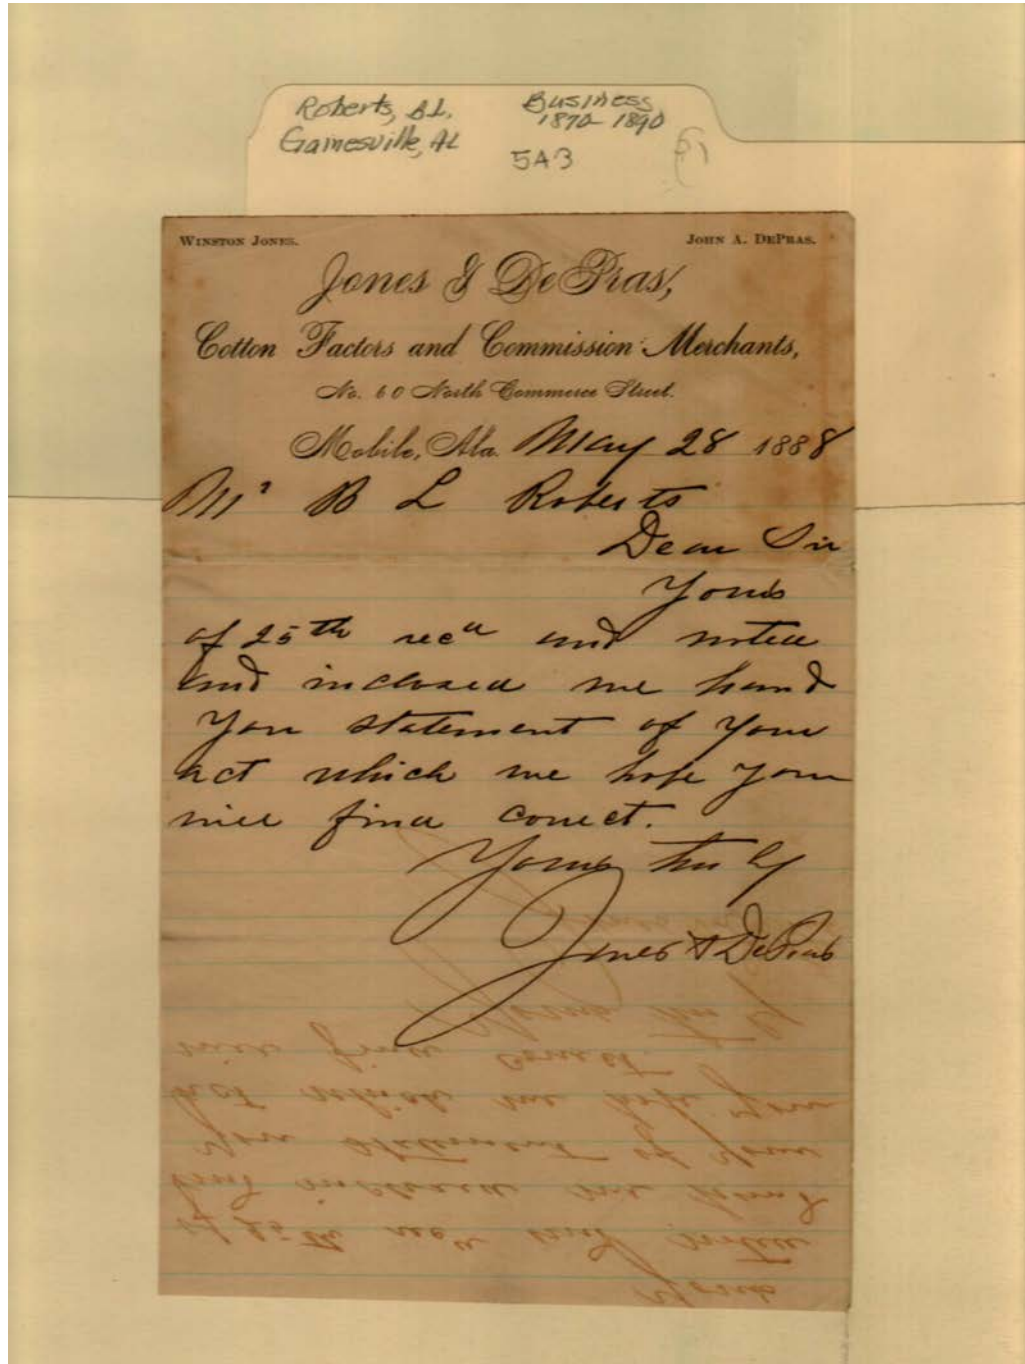 Roberts, BL. Business
Gainesville, AL 1870-1890
5A3
WINSTON JONES. JOHN A. DEPRAS.
Jones & DePras,
Cotton Factors and Commission Merchants,
No. 60 North Commerce Street.
Mobile, Ala. May 28 1888
Mr B L Roberts
Dear Sir
Yours
of 25th recd and noted
and inclosed we hand
you statement of your
act which we hope you
will find correct.
Yours truly
Jones & DePras